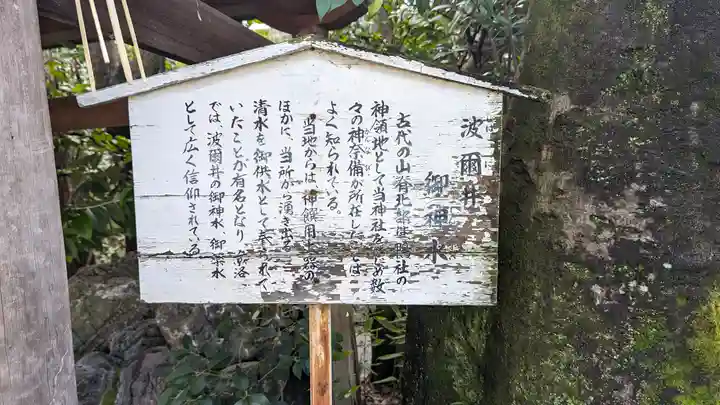 波爾井
御神水
古代の山背北部は賀茂社の
神領地として当神社をはじめ数
々の神奈備が所在したことは
よく知られている。
当地からは、神饌用土器の
ほかに、当所から湧き出る
清水を御供水として奉られて
いたことが有名となり、部落
では、波爾井の御神水、御薬水
として広く信仰されている